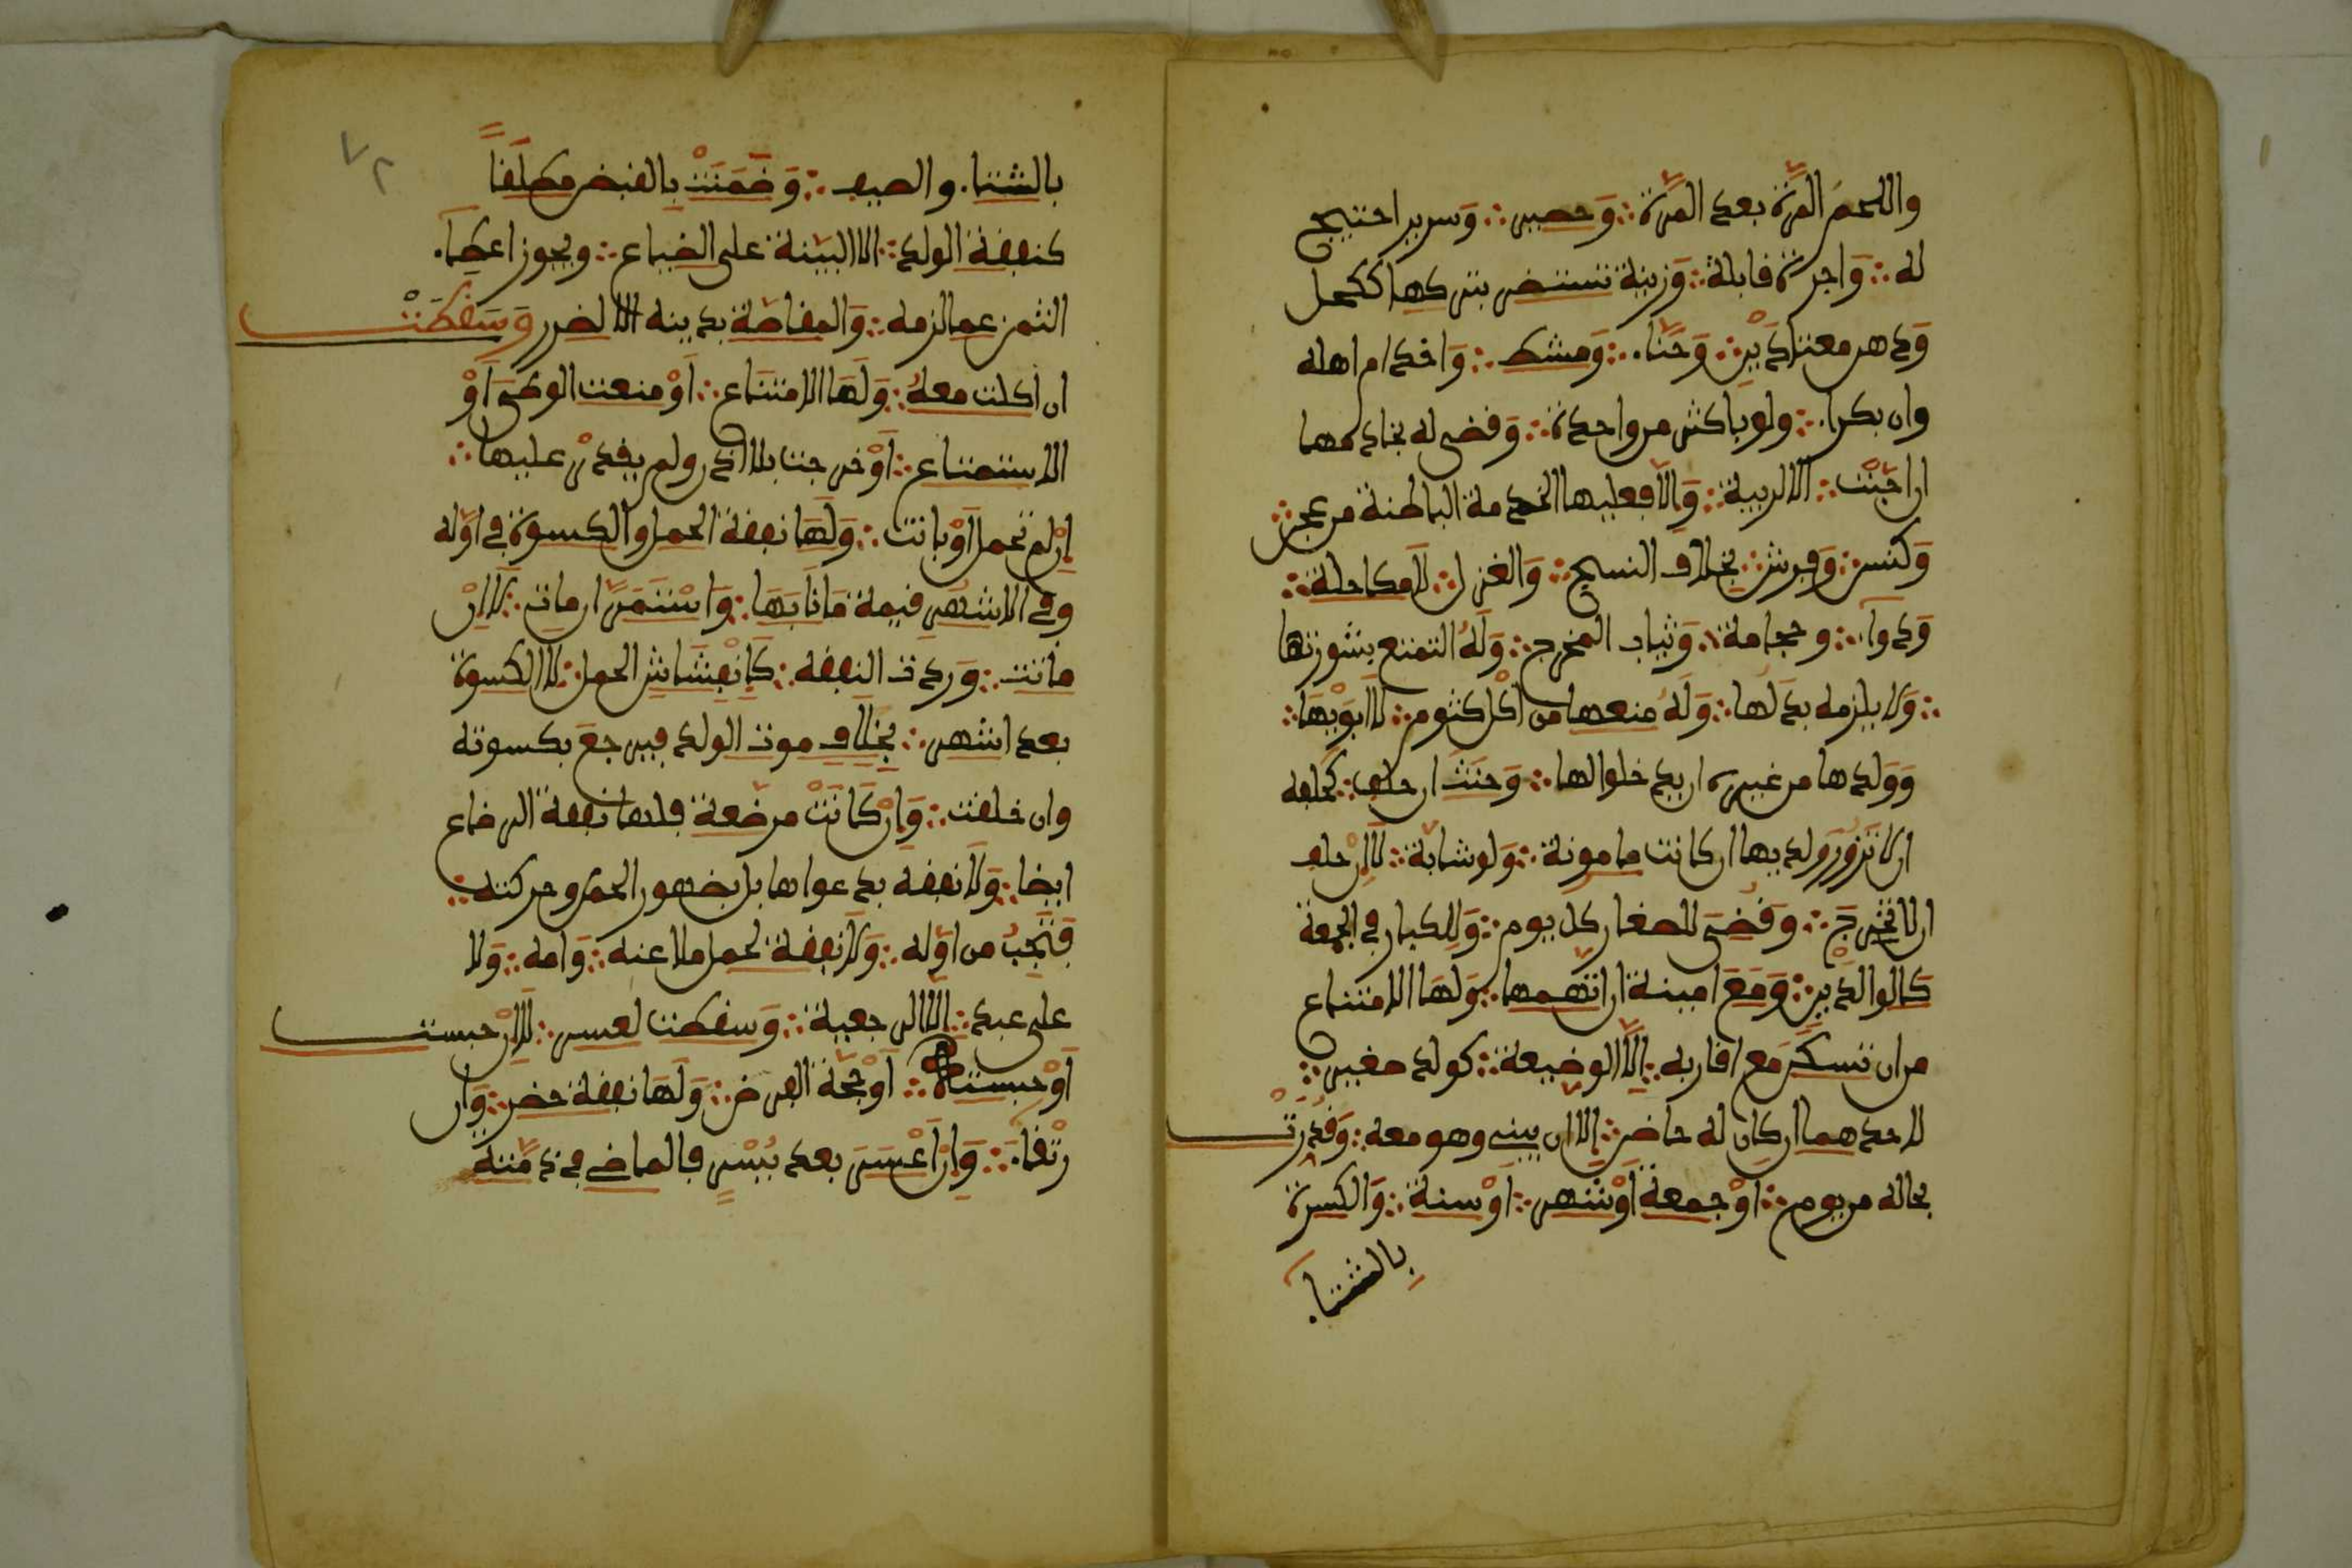 واللحم المرة بعد المرة وحصير وسرير احتيج
له واجرة قابلة وزينة تستضر بتركها ككحل
ودهن معتادين وحناء ومشط واخدام اهله
وان بكراء ولو باكثر من واحدة وقضى له بخادمها
ان احبت الا لريبة والا فعليها الخدمة الباطنة من عجن
وكنس وفرش بخلاف النسيج والغزل لا مكحلة
ودواء وحجامة وثياب المخرج وله التمتع بشورتها
ولا يلزمه بدلها وله منعها من اكل كثوم لا ابويها
وولدها من غيره ان يدخلوا لها وحنث ان حلف كحلفه
ان لا تزور ولديها ان كانت مامونة ولو شابة لا ان حلف
ان لا تخرج وقضى للصغار كل يوم وللكبار في الجمعة
كالوالدين ومع امينة ان اتهمها ولها الامتناع
من ان تسكن مع اقاربه الا الوضيعة كولد صغير
لاحدهما ان كان له حاضن الا ان يبني وهو معه وقدرت
بحاله من يوم او جمعة او شهر او سنة والكسوة
بالشتاء
٧٢
بالشتاء والصيف وضمنت بالقبض مطلقا
كنفقة الولد الا لبينة على الضياع ويجوز اعطاء
الثمن عما لزمه والمقاصة بدينه الا لضرر وسقطت
ان اكلت معه ولها الامتناع او منعت الوطئ او
الاستمتاع او خرجت بلا اذن ولم يقدر عليها
ان لم تحمل او بانت ولها نفقة الحمل والكسوة في اوله
وفي الاشهر قيمة منابها واستمر ان مات لا ان
ماتت وردت النفقة كانفشاش الحمل لا الكسوة
بعد اشهر بخلاف موت الولد فيرجع بكسوته
وان خلقت وان كانت مرضعة فلها نفقة الرضاع
ايضا ولا نفقة بدعواها بل بضهور الحمل وحركته
فتجب من اوله ولا نفقة لحمل ملاعنة وامة ولا
على عبد الا الرجعية وسقطت لعسر لا ان حبست
او حبسته او حجة الفرض ولها نفقة حضر وان
رتقاء وان اعسر بعد يسر فالماضي في ذمته